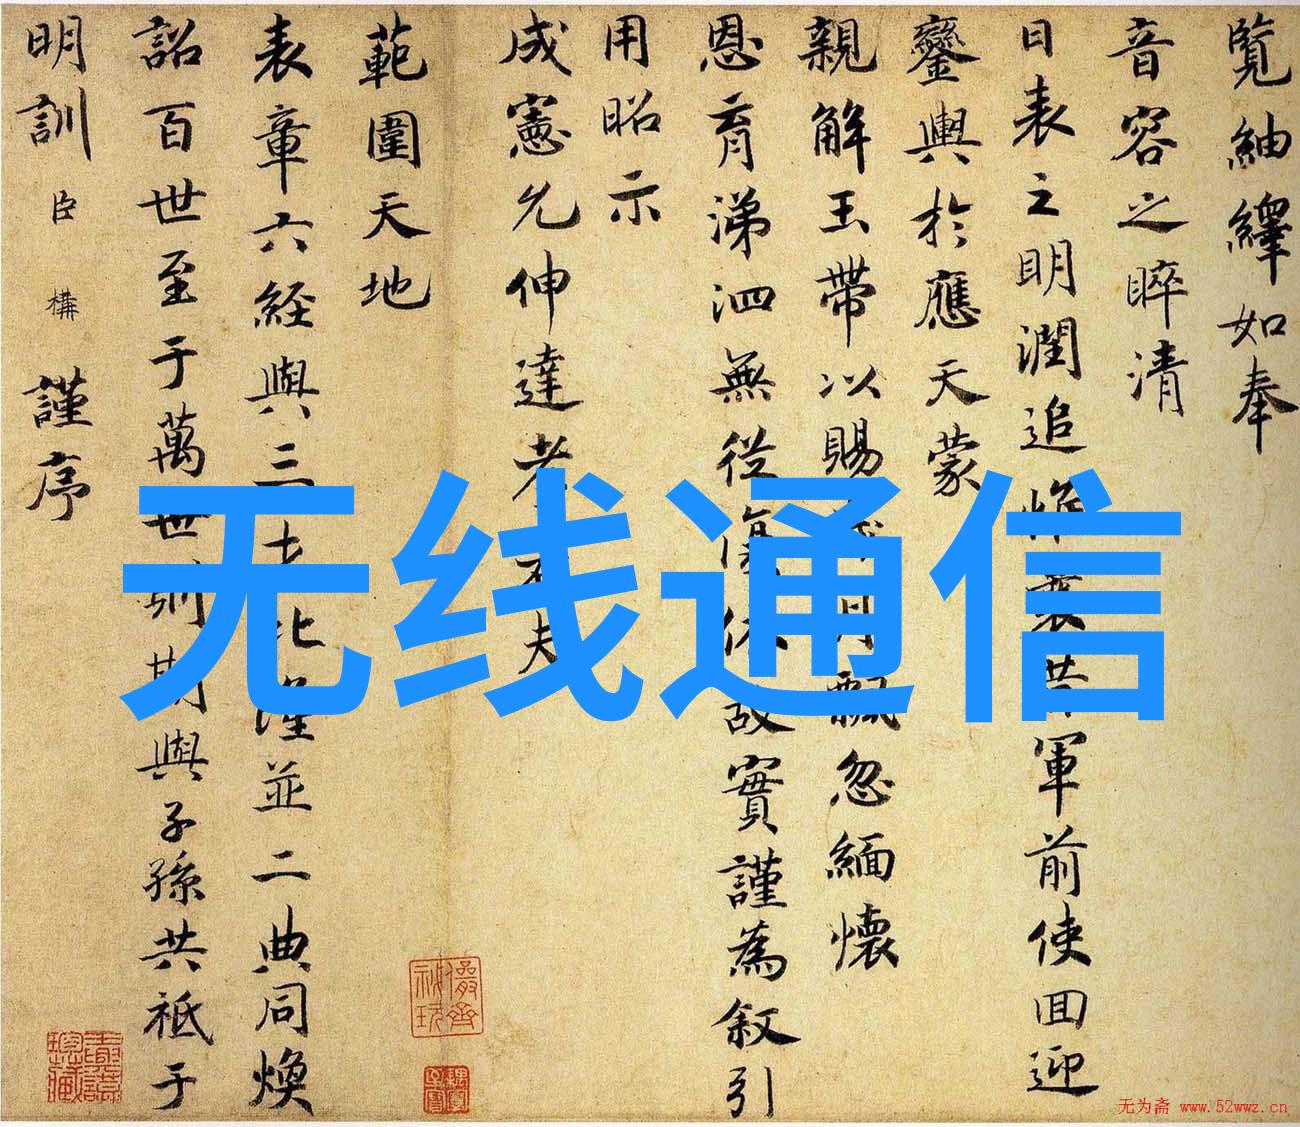 覽紬繹如奉
音容之睟清
日表之明潤追惟軍前使囬迎
鑾輿於應天蒙
親解玉帶以賜月飄忽緬懷
恩育涕泗無從復依故實謹為叙引
用昭示
成憲允伸達孝夫
範圍天地
表章六經與三古比隆並二典同煥
詔百世至于萬世期與子孫共祗于
明訓臣構謹序
无线通信
无为斋 www.52wwz.cn